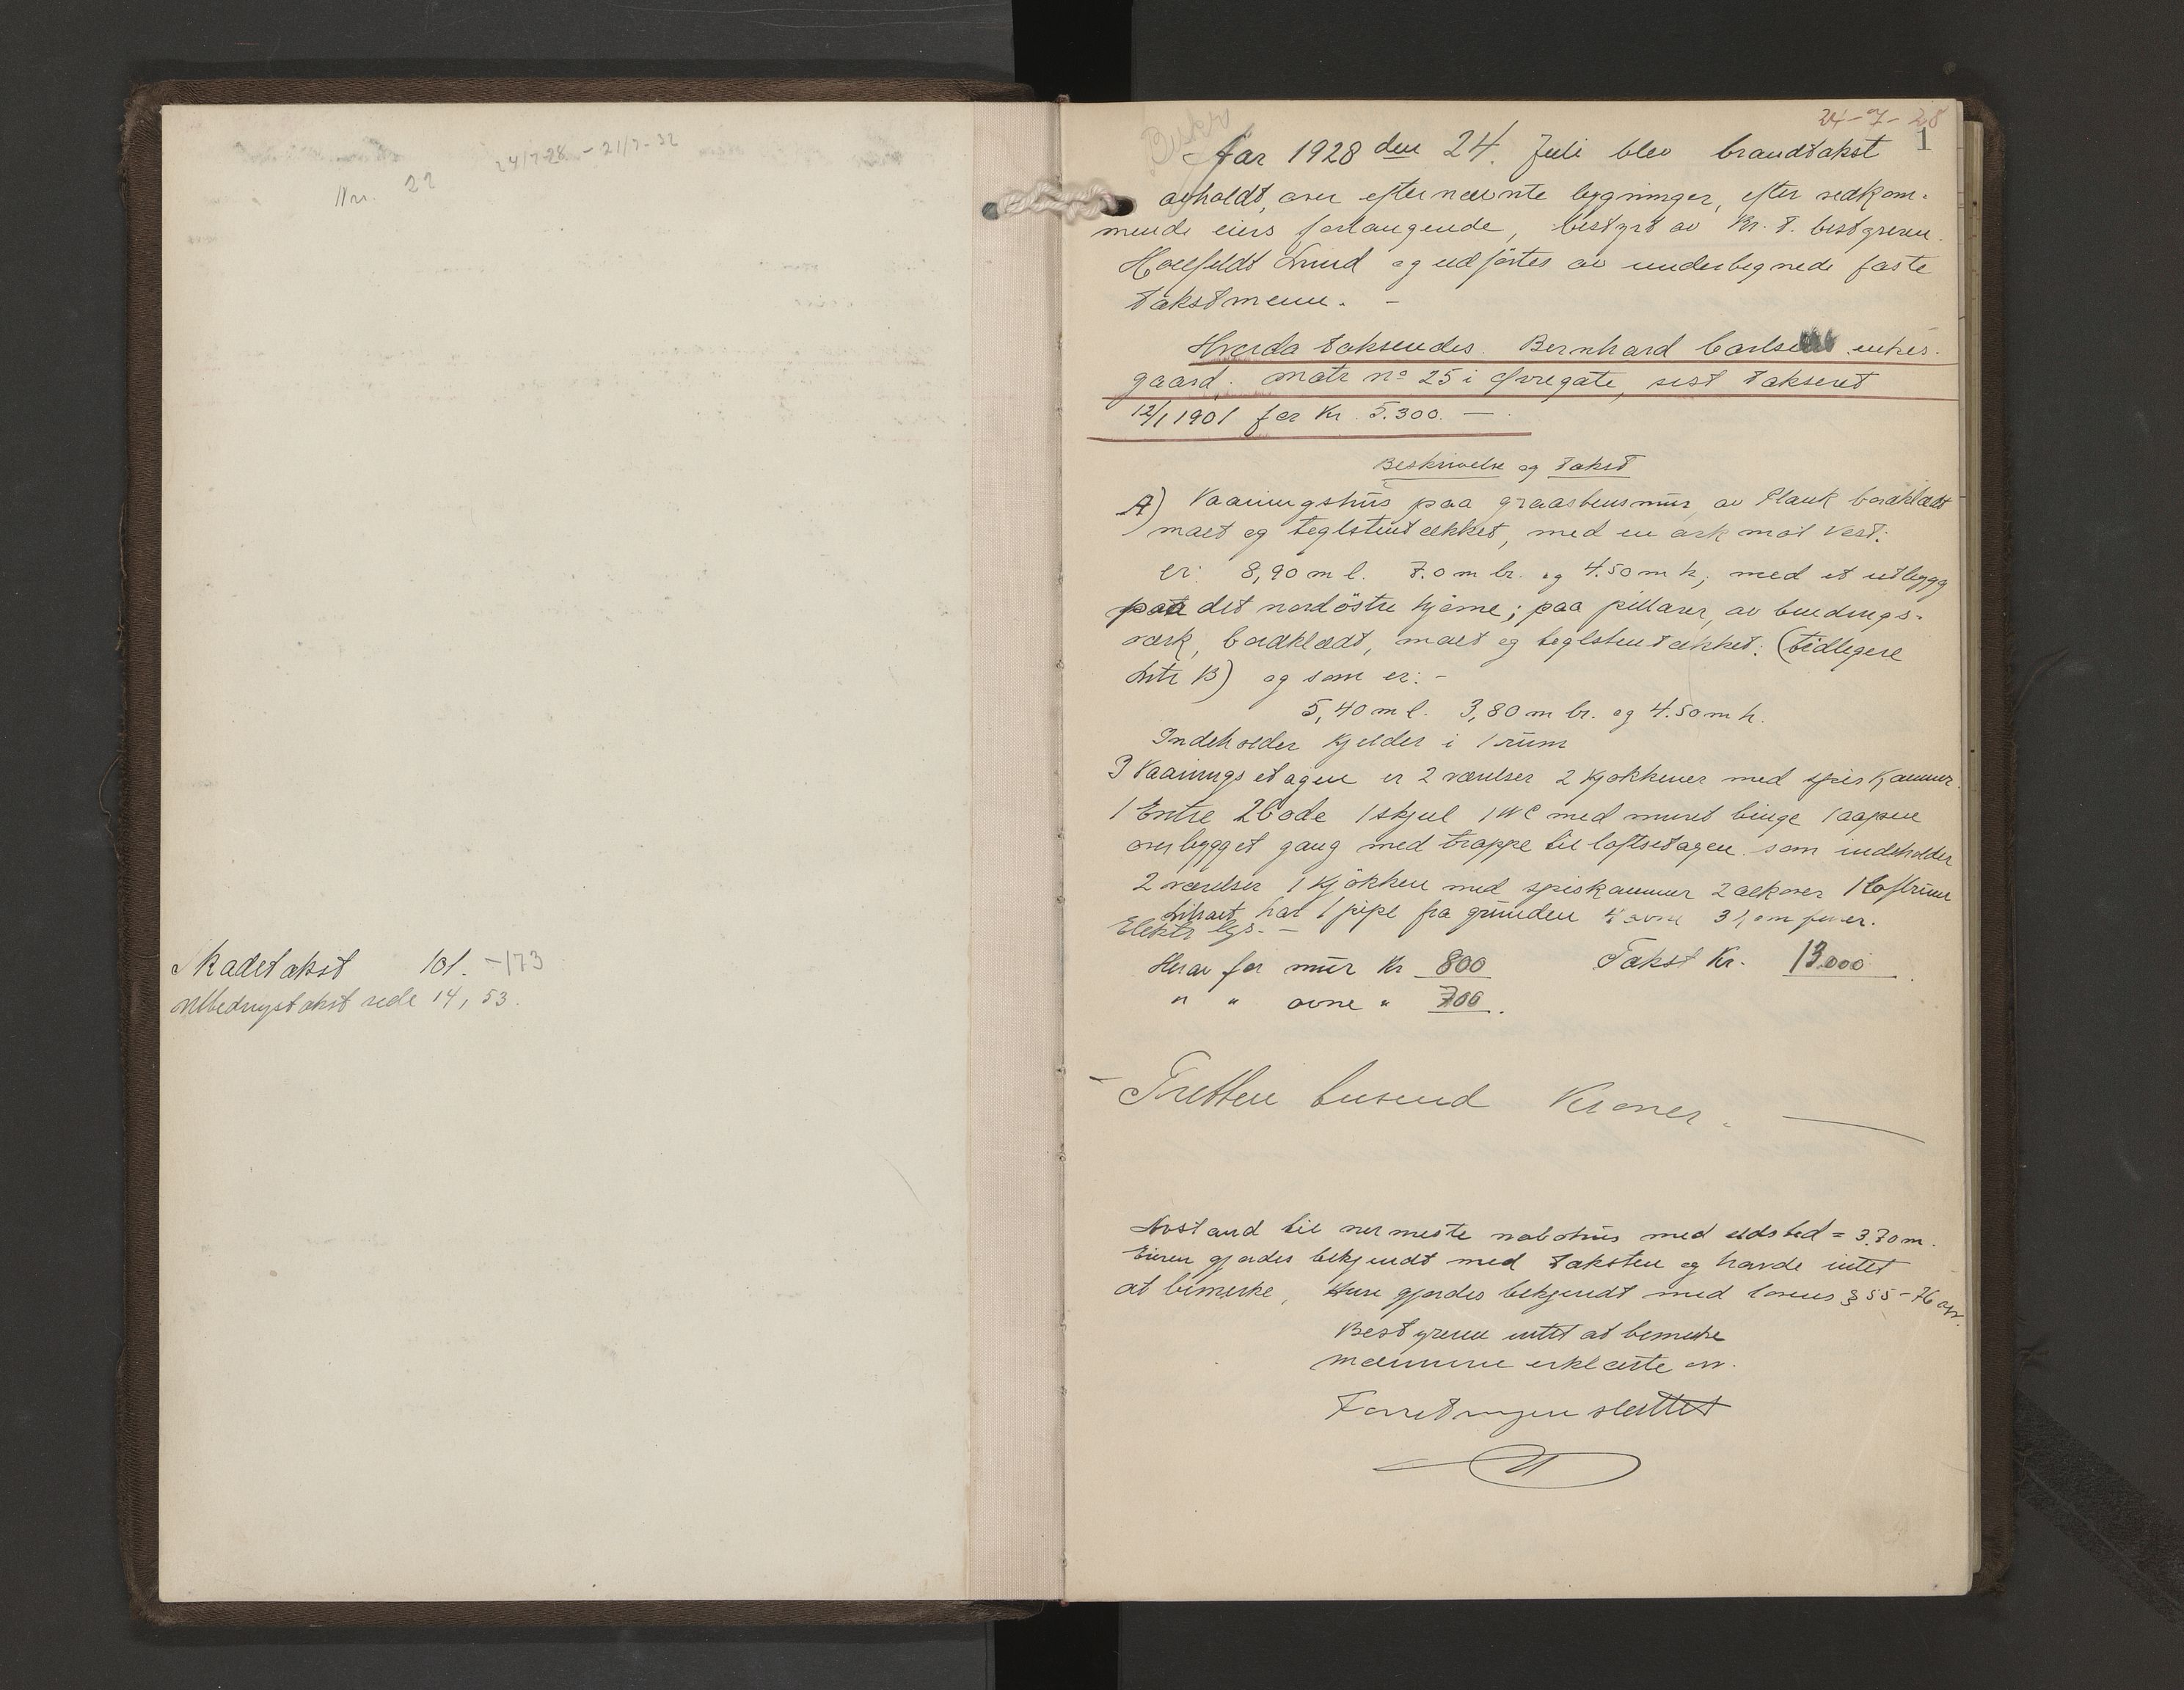 24/7-28 - 21/7-32
Nr. 22
Skadetakst 101. -173
nedbedrugstakst side 14, 53.
24-7-28
1
Aar 1928 den 24. Juli blev brandtakst
avholdt, over efternævnte bygninger, efter vedkom-
mende eiers forlangende, bestyrt av Br. t. bestyreren
Lund og utførtes av undertegnede faste
takstmenn. -
Hvorda takseredes Bernhard Carlsens enkes
gaard. matr no 25 i Øvregate, sist takseret
12/1 1901 for Kr 5.300. -
Beskrivelse og takst
A) Vaaningshus paa graastensmur, av Plank bordklædt
malt og teglstentækket, med en ark mot Vest.
er: 8,90 m l. 7.0 m br. og 4.50 m h, med et utbygg
paa det nordöstre hjørne; paa pillarer, av bindings-
værk, bordklædt, malt og teglstentækket. (tidligere
Litr B) og som er: -
5,40 m l. 3,80 m br. og 4.50 m h.
Indeholder Kjelder i 1 rum
I Vaaningsetagen er 2 værelser 2 Kjøkkener med spiskammer
1 Entre 2 Bode 1 skjul 1 WC med muret binge 1 aapen
overbygget gang med trappe til loftsetagen som indeholder
2 værelser 1 Kjökken med spiskammer 2 alkover 1 loftrum
har 1 pipe fra grunden 4 ovne 3 komfurer.
Elektr lys. -
Herav for mur Kr 800 Takst Kr. 13.000
" " ovne " 700.
- Tretten tusend Kroner. -
Avstand til nermeste nabohus med ildsted = 3.70 m.
Eieren gjordes bekjendt med taksten og havde intet
at bemerke, Hun gjordes bekjendt med lovens § 55-76 ovv.
Bestyreren intet at bemerke
mænnene erklærte ovv.
Forretningen sluttet